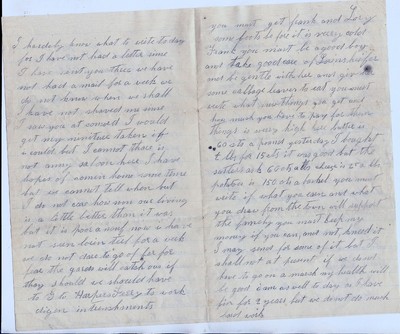 I hardaly know what to write to day
for I have not had a letter since
I have sent you this we have
not had a mail for a week we
do not know when we shall
I have not shaved me since
I see you at concord I would
get my miniature taken if
I could but I cannot there is
not any saloon here I have
hopes of comein home some time
but we cannot tell when but
I do not care how soon our living
is a little better than it was
but it is poor enough now we have
not even been out for a week
we do not dare to go of for for
fear the gards will catch us if
they should we should have
to go to Harpers Ferry to work
digen intrenchments
you must get frank and
new boots be for it is very cold
Frank you must be a good boy
and take good care of
and be gentle with her and give her
some cabbage leaves to eat you must
write what new things you get and
how much you have to pay for them
things is very high here butter is
60 cts a pound yesterday I bought
lb for 15 cts it was good but the
sutlers ask 60 cts a lb cheese is 25 a lb
potatoes is 150 cts a bushel you must
write if what you earn and what
you draw from the town will support
the family you must keep my
money if you can and not spend it
I may send for some of it but I
shall not at present if we dont
have to go on a march my health will
be good I am as well to day as I have
for for 2 years but we do not do much
hard work